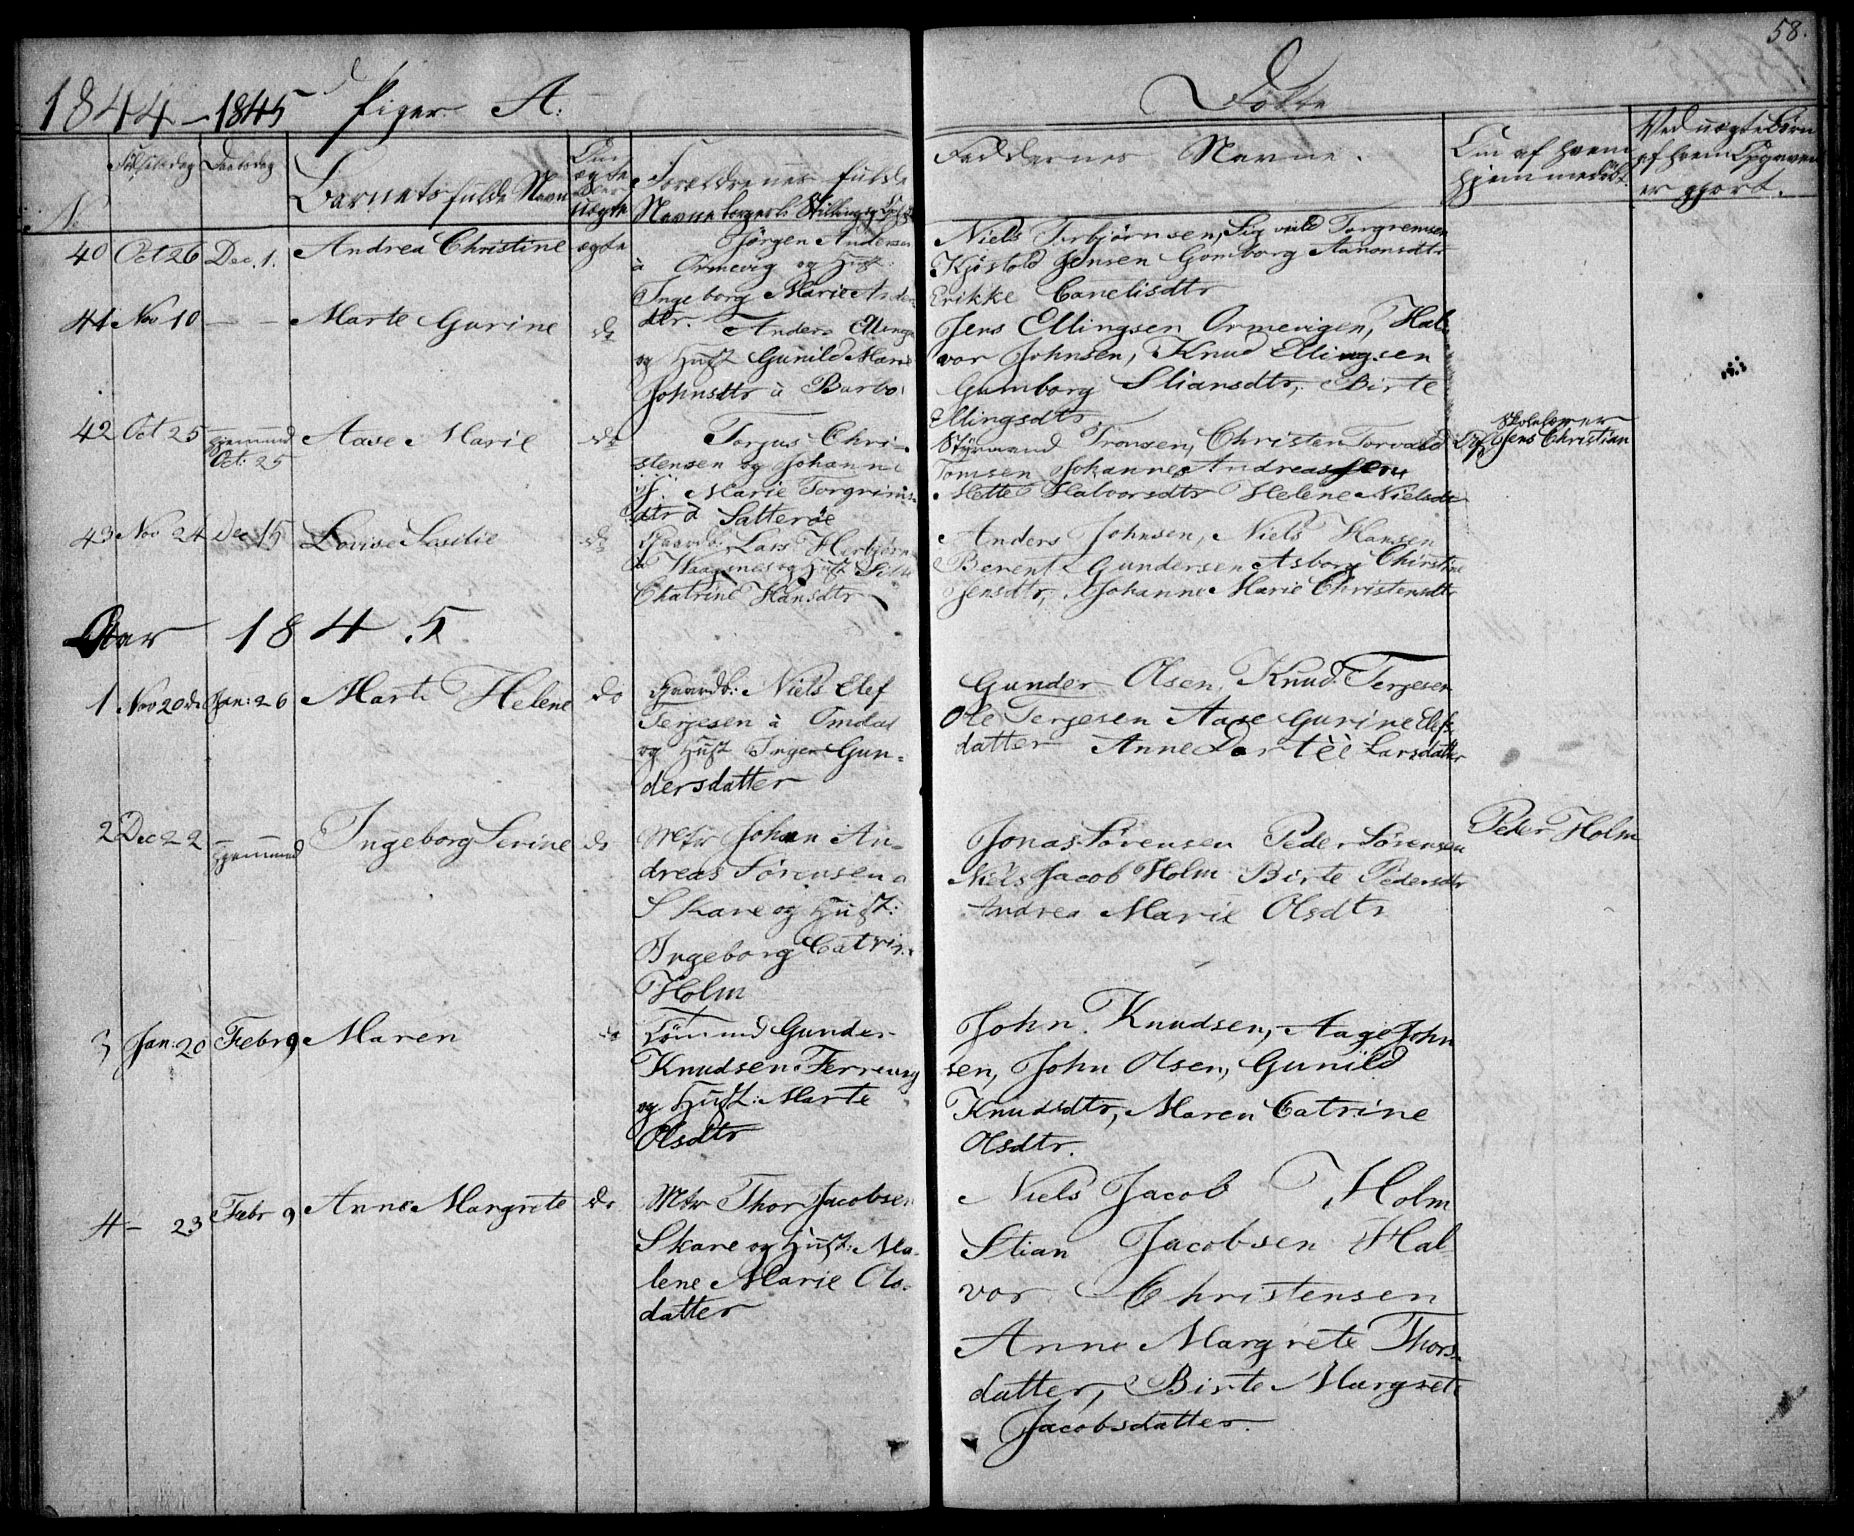 58.
1844 - 1845 Piger A: Fødte
No
Fødselsdag
Daabsdag
Barnets fulde Navn
Om ægte eller uægte
Forældrenes fulde
Navne borgerl: Stilling og
Faddernes Navne.
Om af hvem
hjemmedøbt
Ved uægte Børn
af hvem Opgaven
er gjort.
40 Oct 26 Dec. 1. Andrea Christine ægte
Jørgen Andersen
à Ormevig og Hust:
Ingeborg Marie
dtr.
Niels Torbjørnsen, Sigvald Torgremsen
Kjøstold Jensen Gomborg Aanonsdtr
Erikke Canelisdtr
41 Nov 10 — — Marte Gurine do
Anders Ellings
og Hust Gunild Maria
Johnsdtr à Barbo
Jens Ellingsen Ormevigen, Hal-
vor Johnsen, Knud Ellingsen
Gumborg Stiansdtr, Birte
Ellingsdtr
42 Oct 25 Hjemmed Oct: 25 Aase Marie do
Torjus Chri-
stensen og Johanne
Marie Torgrims-
dtr à Satterøe
Styrmand Tronsen, Christen Torvald
Tomsen Johannes Andreassen
Mette Halvorsdtr Helene Nielsdtr
Skolelærer
Jens Christian
43 Nov 24 Dec 15 Lovise Sesilie do
Gaardb: Lars Herbjørn
à Waagenes og Hust
Chatrine Hansdtr
Anders Johnsen, Niels Hansen
Berent Gundersen Asborg Chirstine
Jensdtr, Johanne Marie Christensdtr
Aar 1845
1 Nov 20de Jan: 26 Marte Helene do
Gaardb: Niels Elef
Terjesen à Omdal
og Hust Inger Gun-
dersdatter
Gunder Olsen, Knud Terjesen
Ole Terjesen Aase Gurine Elefs-
datter Anne Dortèe Larsdatter
2 Dec 22 — Hjemmed Ingeborg Serine do
Mtr Johan An-
dreas Sørensen à
Skare og Hust:
Ingeborg Catrine
Holm
Jonas Sørensen Peder Sørensen
Niels Jacob Holm Birte Pedersdtr
Andrea Marie Olsdtr
Peder Holm
3 Jan: 20 Febr 9 Maren do
Tømmd Gunder
Knudsen Ferrevig
og Hust: Marte
Olsdtr
John Knudsen, Aage John
sen, John Olsen, Gunild
Knudsdtr, Maren Catrine
Olsdtr.
4 - 23 Febr 9 Anne Margrete do
Mtr Thor Jacobsen
Skare og Hust: Ma-
lene Marie Ols-
datter
Niels Jacob Holm
Stian Jacobsen Hal
vor Christensen
Anne Margrete Thors-
datter, Birte Margrete
Jacobsdatter.